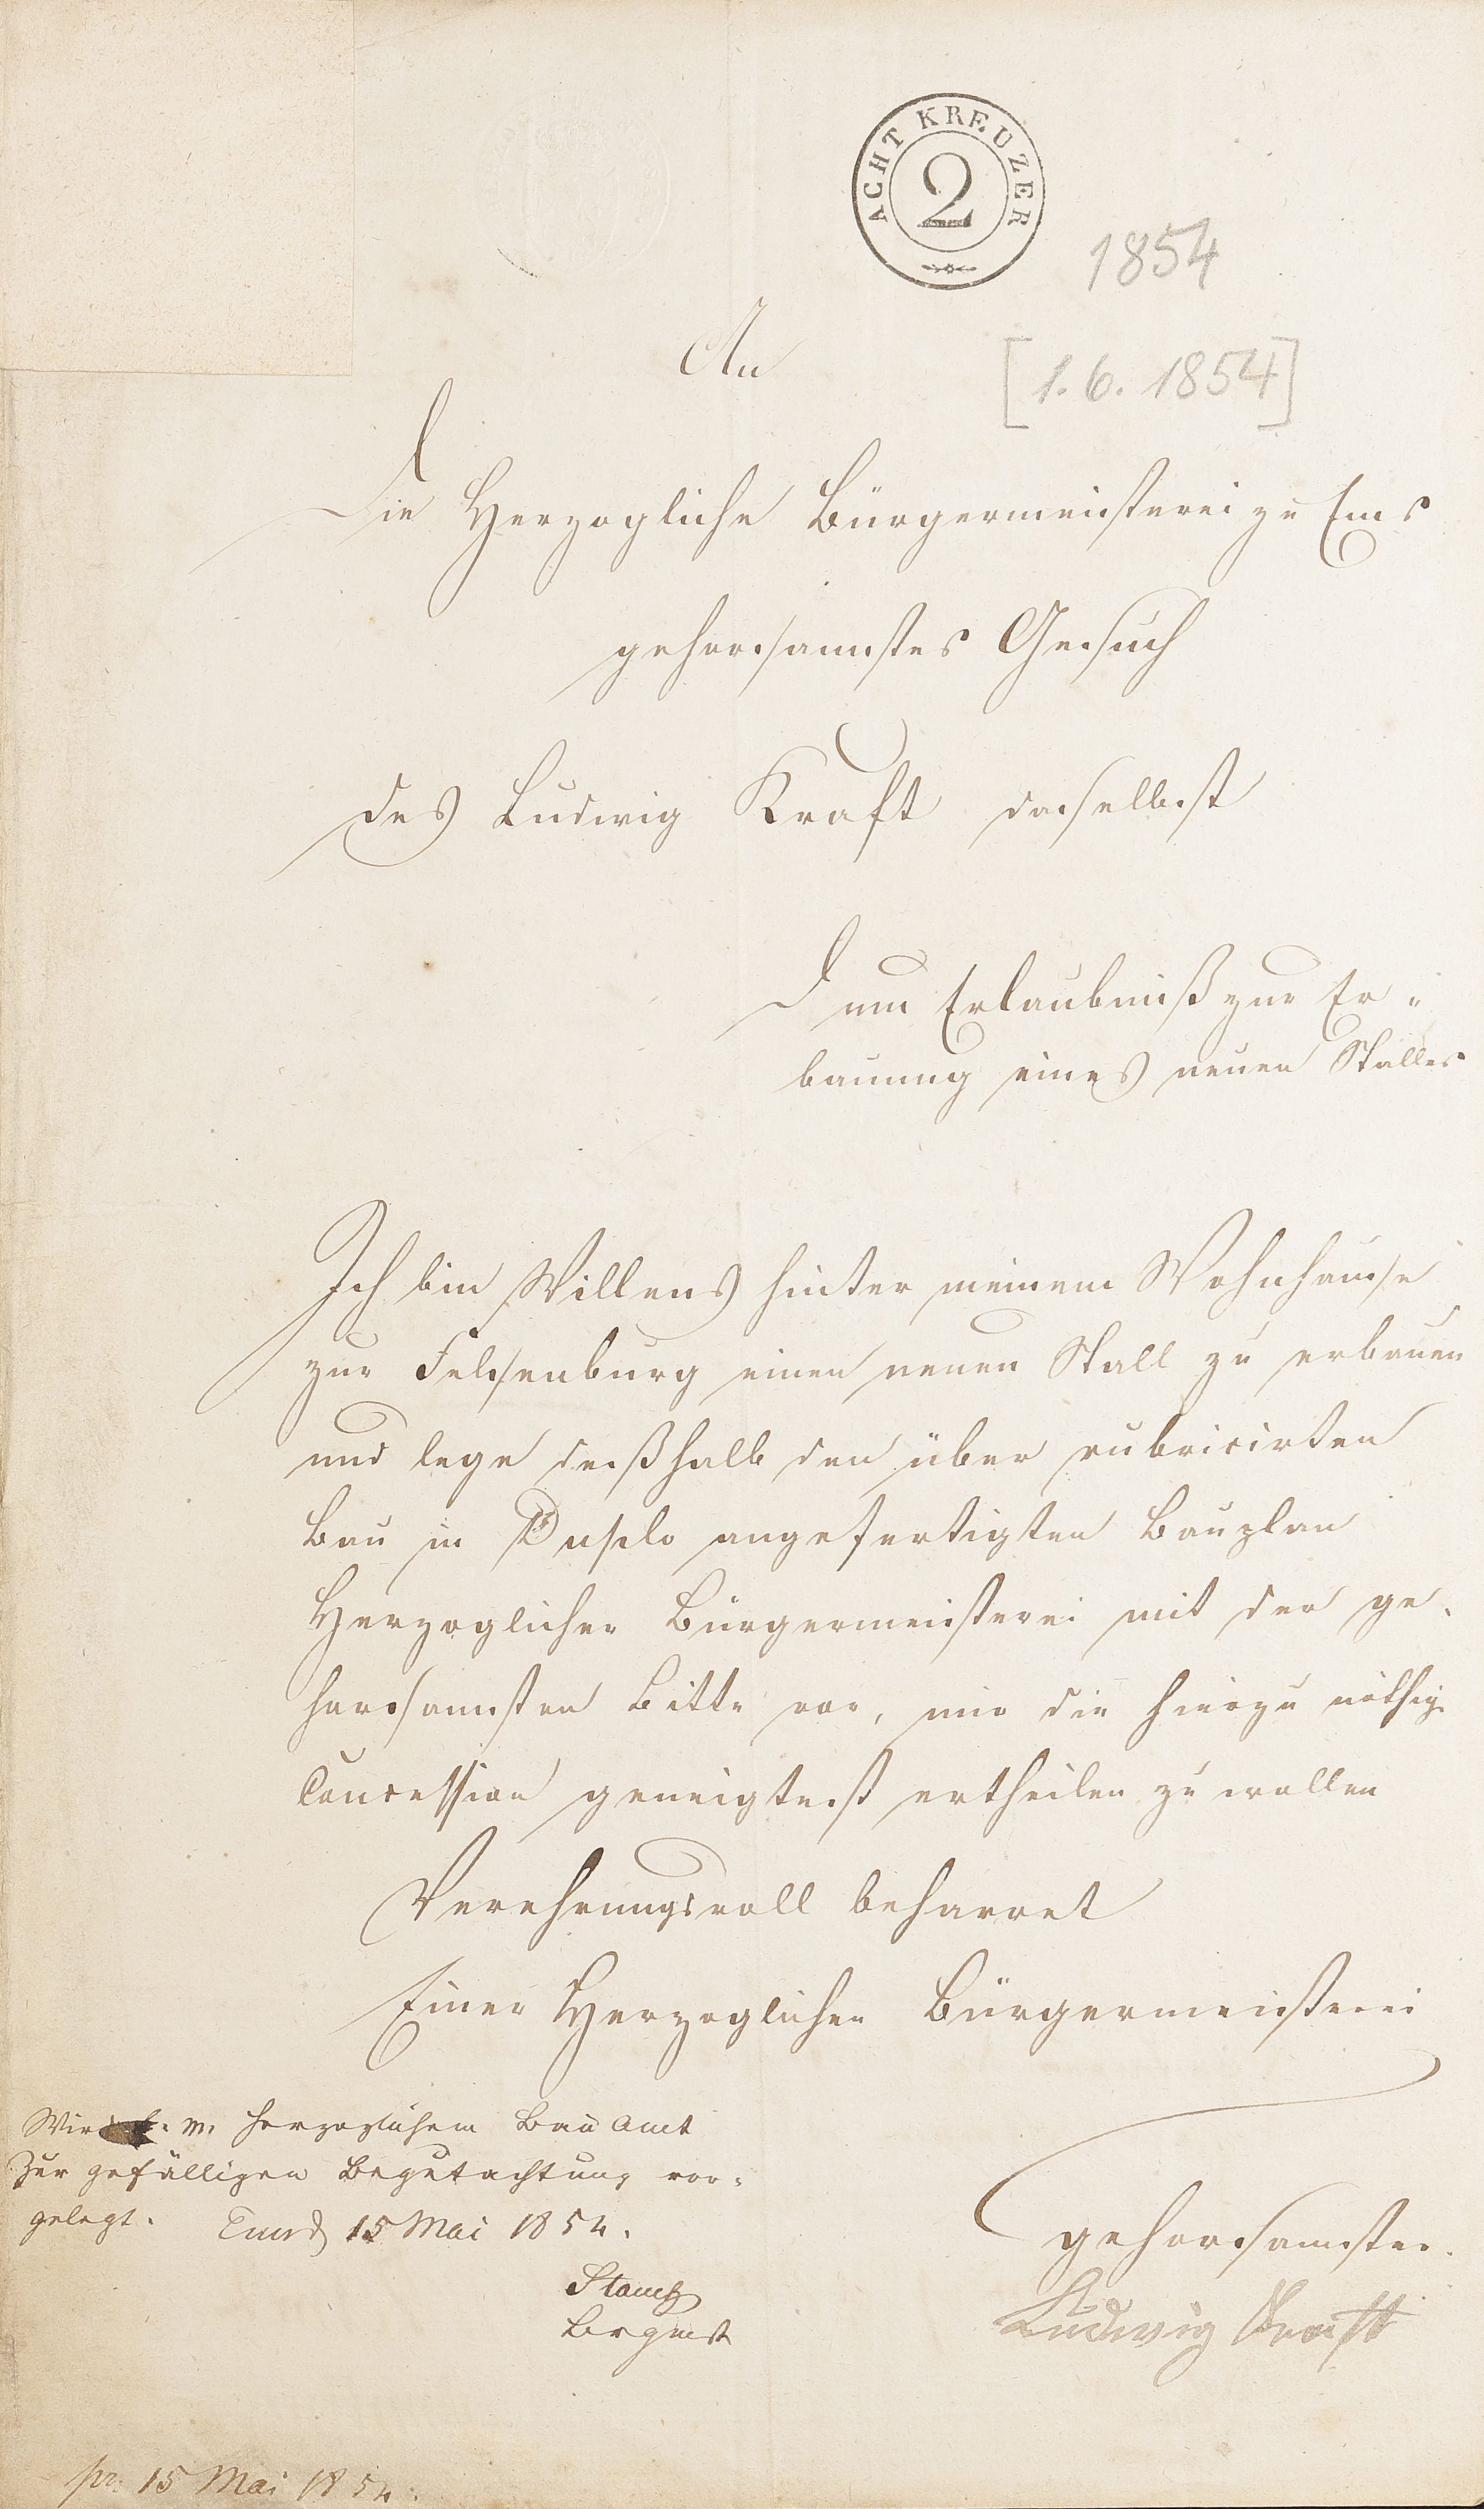 ACHT KREUZER
2
1854
An
[1.6.1854]
Die Herzogliche Bürgermeisterei zu Ems
gehorsamstes Gesuch
des Ludwig Kraft daselbst
um Erlaubniß zur Er-
bauung eines neuen Stalles
Ich bin Willens hinter meinem Wohnhause
zur Felsenburg einen neuen Stall zu erbauen
und lege deßhalb den über rubricirten
Bau in Duplo angefertigten Bauplan
Herzoglicher Bürgermeisterei mit der ge-
horsamsten Bitte vor, mir die hierzu nöthige
Concession geneigtest ertheilen zu wollen
Verehrungsvoll beharret
Einer Herzoglichen Bürgermeisterei
gehorsamster
Ludwig Kraft
Wird Herzoglichem Bau Amt
Zur gefälligen Begutachtung vor-
gelegt. Ems d 15 Mai 1854.
Brgmst
pr. 15 Mai 1854.